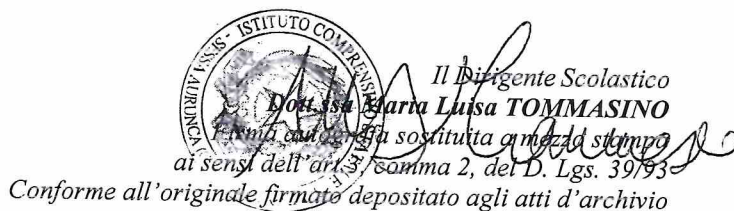 ISTITUTO COMPRENSIVO
SESSA AURUNCA
Il Dirigente Scolastico
Dott.ssa Maria Luisa TOMMASINO
Firma autografa sostituita a mezzo stampa
ai sensi dell'art. comma 2, del D. Lgs. 39/93
Conforme all'originale firmato depositato agli atti d'archivio